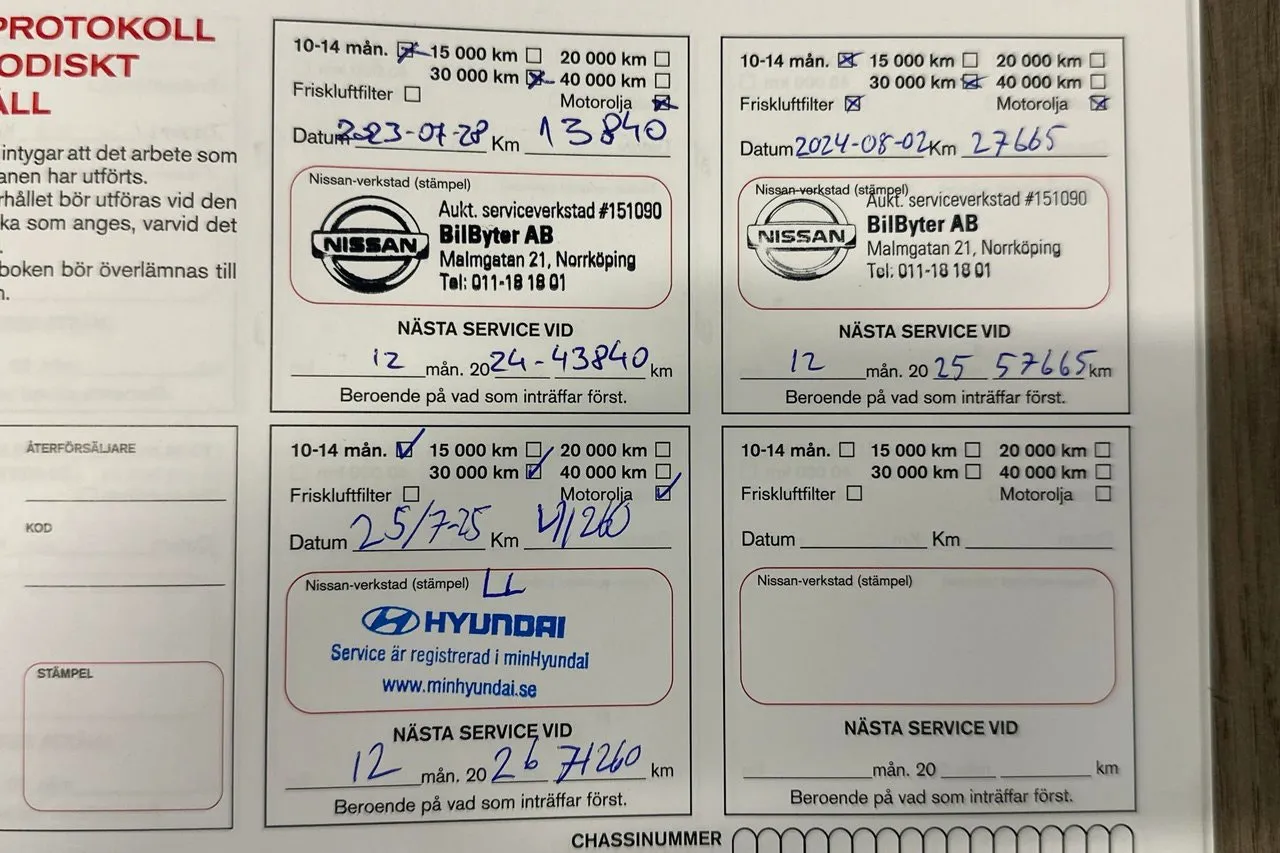 PROTOKOLL
ODISKT
ÅLL
intygar att det arbete som
anen har utförts.
rhållet bör utföras vid den
ka som anges, varvid det
boken bör överlämnas till
n.
10-14 mån. 15 000 km 20 000 km
30 000 km 40 000 km
Friskluftfilter Motorolja
Datum 2023-07-28 Km 13840
Nissan-verkstad (stämpel)
NISSAN
Aukt. serviceverkstad #151090
BilByter AB
Malmgatan 21, Norrköping
Tel: 011-18 18 01
NÄSTA SERVICE VID
12 mån. 2024-43840 km
Beroende på vad som inträffar först.
10-14 mån. 15 000 km 20 000 km
30 000 km 40 000 km
Friskluftfilter Motorolja
Datum 2024-08-02 Km 27665
Nissan-verkstad (stämpel)
NISSAN
Aukt. serviceverkstad #151090
BilByter AB
Malmgatan 21, Norrköping
Tel: 011-18 18 01
NÄSTA SERVICE VID
12 mån. 20 25 57665 km
Beroende på vad som inträffar först.
ÅTERFÖRSÄLJARE
KOD
STÄMPEL
10-14 mån. 15 000 km 20 000 km
30 000 km 40 000 km
Friskluftfilter Motorolja
Datum 25/7-25 Km 41260
Nissan-verkstad (stämpel) LL
HYUNDAI
Service är registrerad i minHyundai
www.minhyundai.se
NÄSTA SERVICE VID
12 mån. 20 26 71260 km
Beroende på vad som inträffar först.
10-14 mån. 15 000 km 20 000 km
30 000 km 40 000 km
Friskluftfilter Motorolja
Datum Km
Nissan-verkstad (stämpel)
NÄSTA SERVICE VID
mån. 20 km
Beroende på vad som inträffar först.
CHASSINUMMER